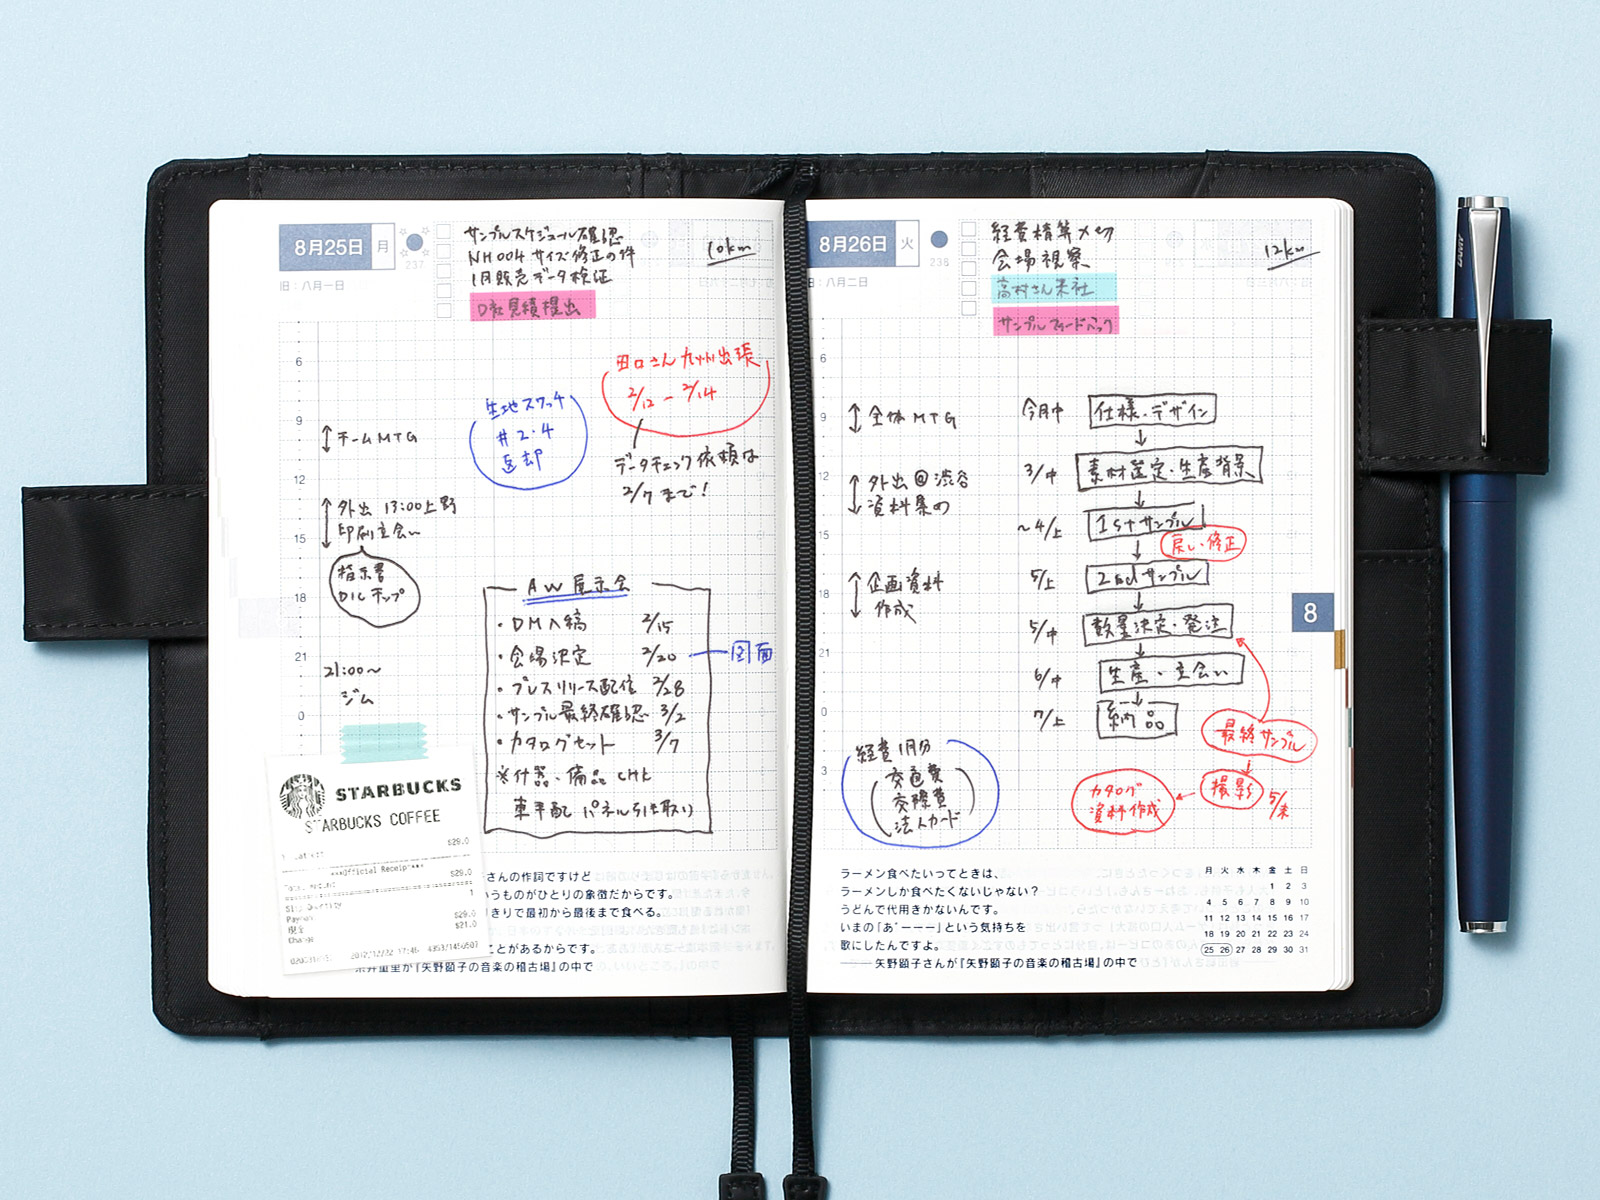 8月25日 月
237
旧：八月一日
サンプルスケジュール確認
NH004サイズ修正の件
1月販売データ検証
D社見積提出
10km
6
9
12
15
18
21
0
チームMTG
外出 13:00上野
印刷立会い
指示書
DICチップ
21:00~
ジム
生地スワッチ
#2・4
返却
田口さん九州出張
2/12 - 2/14
データチェック依頼は
2/7まで!
AW展示会
・DM入稿 2/15
・会場決定 2/20
図面
・プレスリリース配信 2/28
・サンプル最終確認 3/2
・カタログセット 3/7
※什器・備品CHK
車手配 パネル引き取り
STARBUCKS
STARBUCKS COFFEE
$29.0
***Official Receipt***
Total Amount $29.0
1
Payment $29.0
現金 $21.0
Change
2012/12/22 17:46
さんの作詞ですけど
いうものがひとりの象徴だからです。
きりで最初から最後まで食べる。
ことがあるからです。
糸井重里が『矢野顕子の音楽の稽古場』の中で
8月26日 火
238
旧：八月二日
経費精算〆切
会場視察
高村さん来社
サンプルフィードバック
12km
6
9
12
15
18
21
0
3
全体MTG
外出@渋谷
資料集め
企画資料
作成
今月中 仕様・デザイン
3/中 素材選定・生産背景
~4/上 1stサンプル
戻し・修正
5/上 2ndサンプル
5/中 数量決定・発注
6/中 生産・立会い
7/上 納品
最終サンプル
撮影 5/末
カタログ
資料作成
経費1月分
交通費
交際費
法人カード
8
ラーメン食べたいってときは、
ラーメンしか食べたくないじゃない？
うどんで代用きかないんです。
いまの「あ゛ーーー」という気持ちを
歌にしたんですよ。
——矢野顕子さんが『矢野顕子の音楽の稽古場』の中で
月 火 水 木 金 土 日
1 2 3
4 5 6 7 8 9 10
11 12 13 14 15 16 17
18 19 20 21 22 23 24
25 26 27 28 29 30 31
LAMY